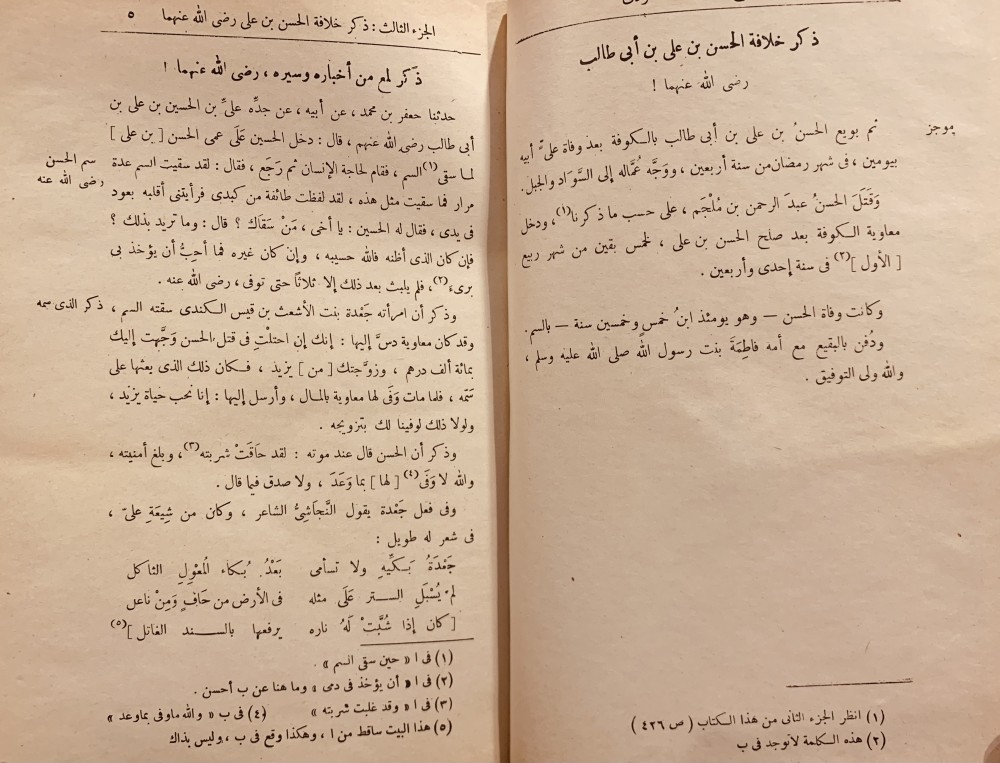 ذكر خلافة الحسن بن على بن أبى طالب
رضى الله عنهما !
موجز
ثم بويع الحسنُ بن على بن أبى طالب بالكوفة بعد وفاة علىّ أبيه
بيومين ، فى شهر رمضان من سنة أربعين ، ووَجَّه عُمَّاله إلى السَّوَاد والجبل.
وَقَتَلَ الحسنُ عبدَ الرحمن بن مُلْجَم ، على حسب ما ذكرنا(١)، ودخل
معاوية الكوفة بعد صلح الحسن بن على ، لخمس بقين من شهر ربيع
[ الأول ](٢) فى سنة إحدى وأربعين .
وكانت وفاة الحسن — وهو يومئذ ابنُ خمسٍ وخمسين سنة — بالسم.
ودُفن بالبقيع مع أمه فاطِمَةَ بنت رسول الله صلى الله عليه وسلم ،
والله ولى التوفيق .
(١) انظر الجزء الثانى من هذا الكتاب ( ص ٤٢٦ )
(٢) هذه الكلمة لاتوجد فى ب
الجزء الثالث : ذكر خلافة الحسن بن على رضى الله عنهما ٥
ذكر لمع من أخباره وسيره ، رضى الله عنهما !
حدثنا جعفر بن محمد ، عن أبيه ، عن جدِّه علىِّ بن الحسين بن على بن
أبى طالب رضى الله عنهم ، قال : دخل الحسين عَلَى عمى الحسن [ بن على ]
لما سقى(١) السم ، فقام لحاجة الإنسان ثم رَجَع ، فقال : لقد سقيت السم عدة
سم الحسن
رضى الله عنه
مرار فما سقيت مثل هذه ، لقد لفظت طائفة من كبدى فرأيتنى أقلبه بعود
فى يدى ، فقال له الحسين : يا أخى ، مَنْ سَقَاك ؟ قال : وما تريد بذلك ؟
فإن كان الذى أظنه فالله حسيبه ، وإن كان غيره فما أحِبُّ أن يؤخذ بى
برىء(٢)، فلم يلبث بعد ذلك إلا ثلاثًا حتى توفى ، رضى الله عنه .
وذكر أن امرأته جَعْدة بنت الأشعث بن قيس الكندى سقته السم ،
ذكر الذى سمه
وقد كان معاوية دسَّ إليها : إنك إن احتلْتِ فى قتل الحسن وَجَّهت إليك
بمائة ألف درهم ، وزوَّجتك [ من ] يزيد ، فكان ذلك الذى بعثها على
سَمّه ، فلما مات وَفَى لها معاوية بالمال ، وأرسل إليها : إنا نحب حياة يزيد ،
ولولا ذلك لوفينا لك بتزويجه .
وذكر أن الحسن قال عند موته : لقد حَاقَتْ شربته(٣)، وبلغ أمنيته ،
والله لا وَفَى(٤) [ لها ] بما وَعَدَ ، ولا صدق فيما قال .
وفى فعل جَعْدة يقول النَّجَاشِىُّ الشاعر ، وكان من شِيعَةِ علىّ ،
فى شعر له طويل :
جَعْدَةُ بَكِّيهِ ولا تسأمى بَعْدُ بُكاء المُعْوِلِ الثاكل
لمْ يُسْبَلِ الستر عَلَى مثله فى الأرض من حَافٍ وَمِنْ ناعل
[ كان إذا شُبَّتْ لَهُ ناره يرفعها بالسند الغاتل ](٥)
(١) فى ا « حين سقى السم » .
(٢) فى ا « أن يؤخذ فى دمى » وما هنا عن ب أحسن .
(٣) فى ا « وقد غلبت شربته » (٤) فى ب « والله ماوفى بماوعد »
(٥) هذا البيت ساقط من ا ، وهكذا وقع فى ب ، وليس بذاك